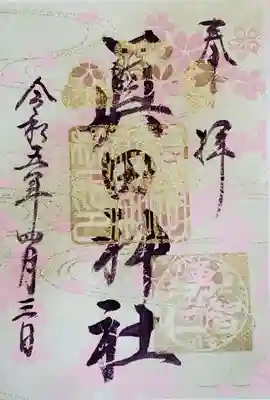 奉拝
眞田神社
令和五年四月三日